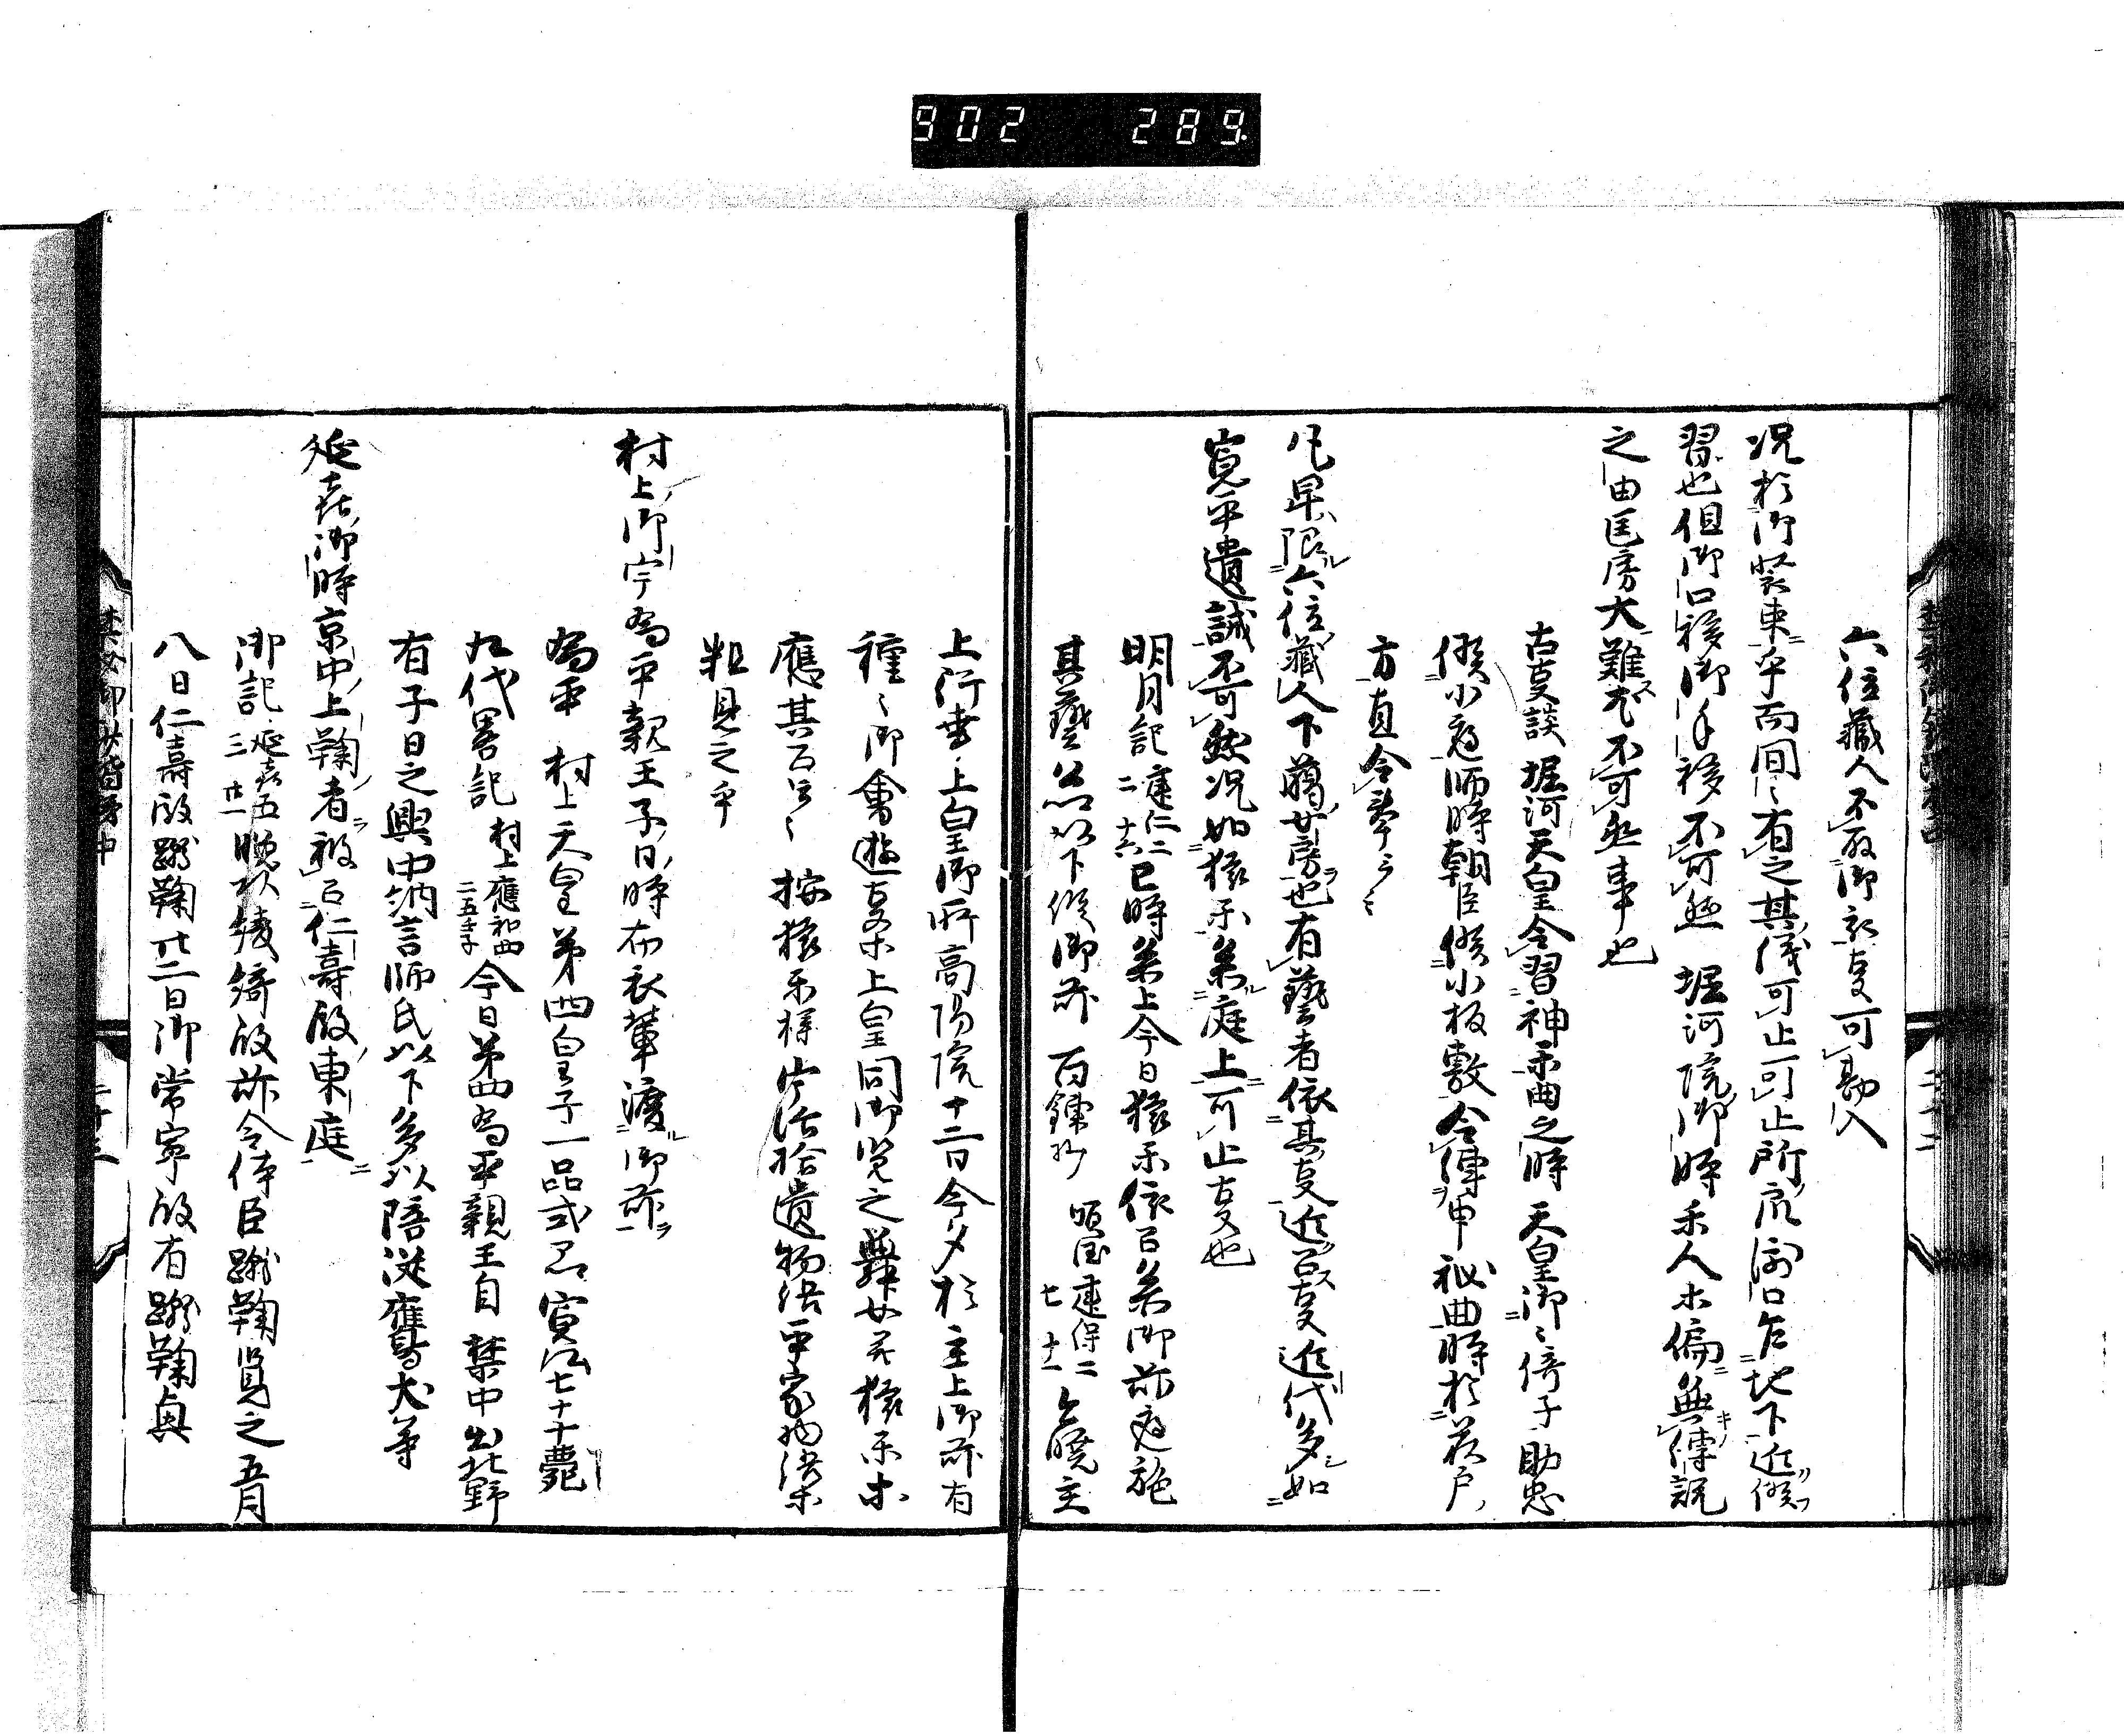 902 289
六位藏人不取御衣事可勘入
況於御装束乎而間〻有之其儀可止可止所衆瀧口乍地下近候
習也但御口移御手移不可然堀河院御時樂人木偏無傳説
之由匡房大難也不可然事也
古事談堀河天皇令習神樂曲之時天皇御〻倚子助忠
候小庭師時朝臣候小板敷令傳申秘曲時於萩戸
方直令擧云〻
凡卑限六位藏人下﨟女房也有藝者依其事近召事近代多如
寛平遺誡不可然況如猿樂参庭上可止事也
明月記建仁二
二十六巳時参上今日猿樂依召参御前庭施
其藝公卿以下候御前百錬抄順徳建保二
七十一今曉主
上行幸上皇御所高陽院十二日今夕於主上御前有
種〻御會遊事木上皇同御覧之舞女并猿樂木
應其召云〻按猿樂樣宇治拾遺物語平家物語木
粗見之乎
村上御宇為平親王子日時布衣輩渡御前
為平村上天皇第四皇子一品式ア寛弘七十十薨
九代畧記村上應和四
二五壬子今日第四為平親王自禁中出北野
有子日之興中納言師氏以下多以陪從鷹犬等
延喜御時京中上鞠者被召仁壽殿東庭
御記延喜五
三廿一晩頭綾綺殿前令侍臣蹴鞠覧之五月
八日仁壽殿蹴鞠廿二日御常寧殿有蹴鞠興
禁秘御抄階梯中
二十三